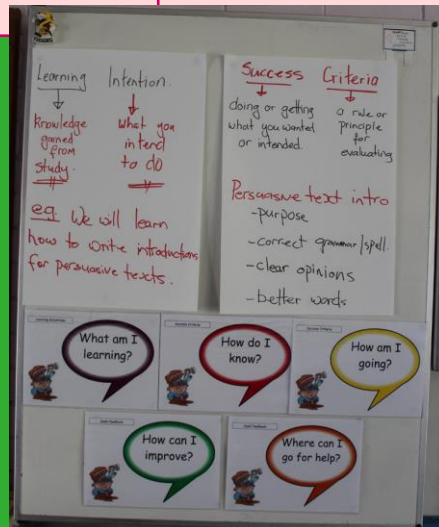 Learning Intention.
knowledge
gained
from
study.
what you
intend
to do
eg We will learn
how to write introductions
for persuasive texts.
Success Criteria
doing or getting
what you wanted
or intended.
a rule or
principle
for
evaluating
Persuasive text intro
-purpose
-correct grammar/spell.
-clear opinions
-better words
What am I
learning?
How do I
know?
How am I
going?
How can I
improve?
Where can I
go for help?